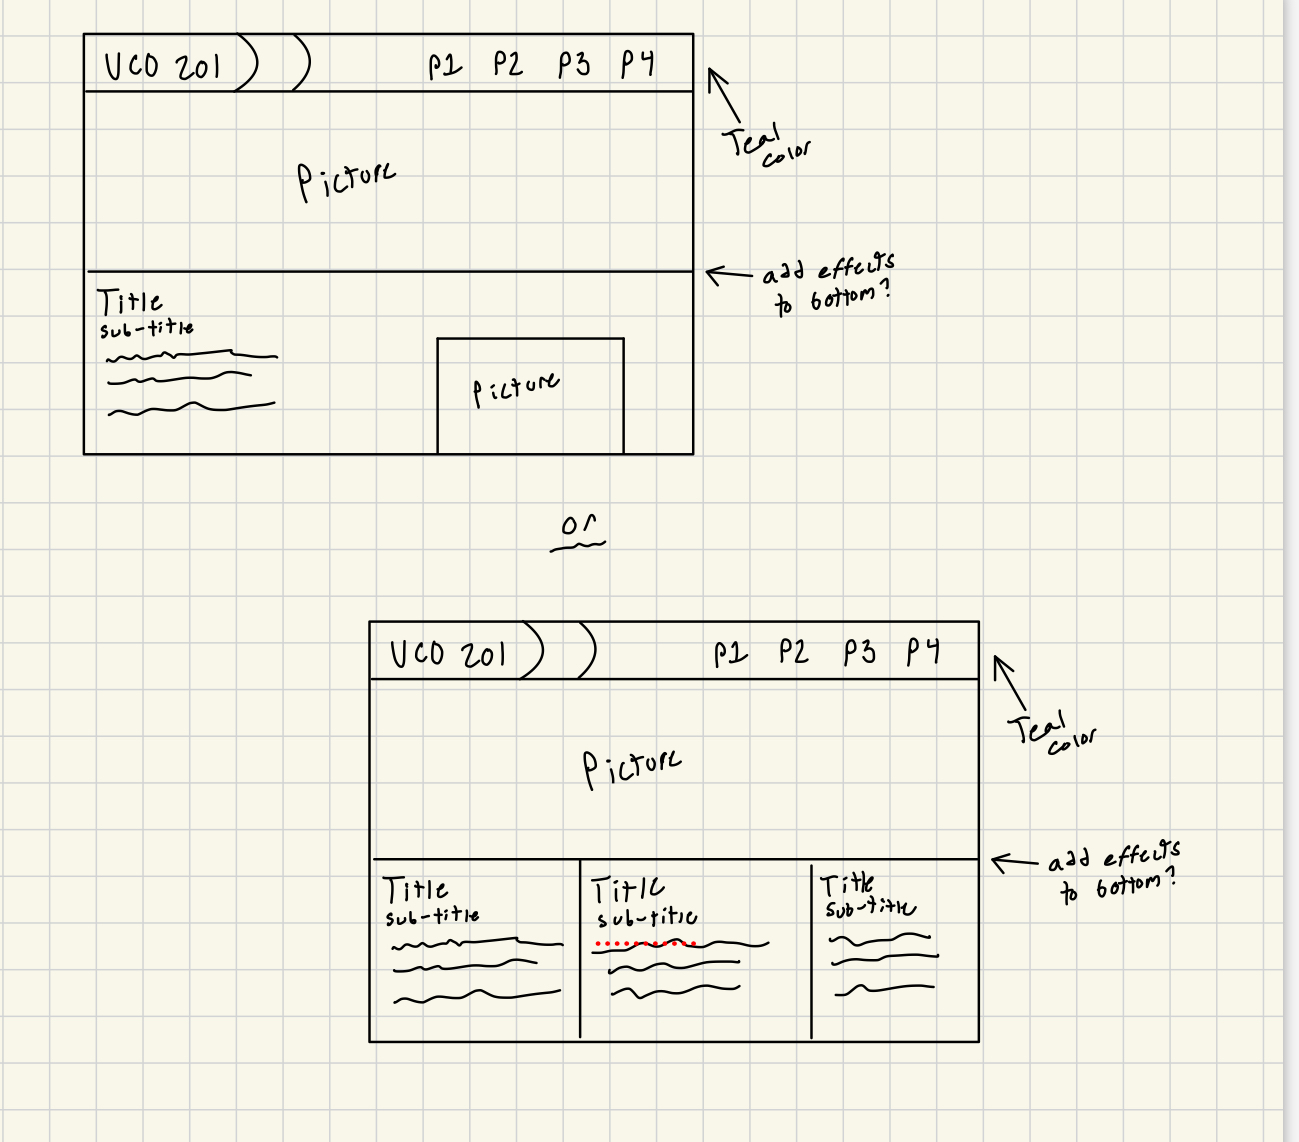 UCO 201 P1 P2 P3 P4
Teal
color
Picture
add effects
to bottom?
Title
sub-title
Picture
or
UCO 201 P1 P2 P3 P4
Teal
color
Picture
add effects
to bottom?
Title
sub-title
Title
sub-title
Title
sub-title